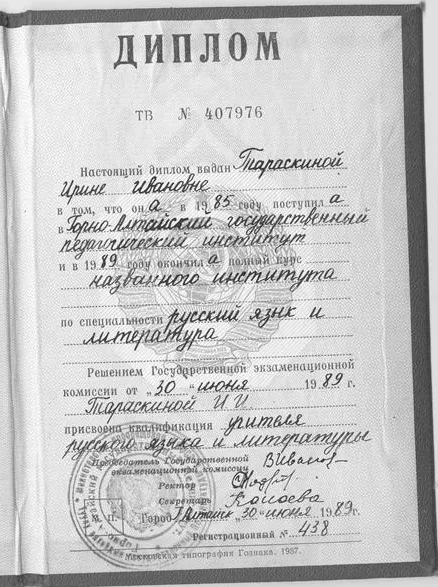 ДИПЛОМ
ТВ № 407976
Настоящий диплом выдан Тараскиной
Ирине Ивановне
в том, что он а в 1985 году поступил а
в Горно-Алтайский государственный
педагогический институт
и в 1989 году окончил а полный курс
названного института
по специальности русский язык и
литература
Решением Государственной экзаменационной
комиссии от „30“ июня 1989 г.
Тараскиной И И
присвоена квалификация учителя
русского языка и литературы
Председатель Государственной
экзаменационной комиссии
Ректор
Секретарь
М. П. Город Г Алтайск „30“ июня 1989г.
Регистрационный № 438
Московская типография Гознака. 1987.